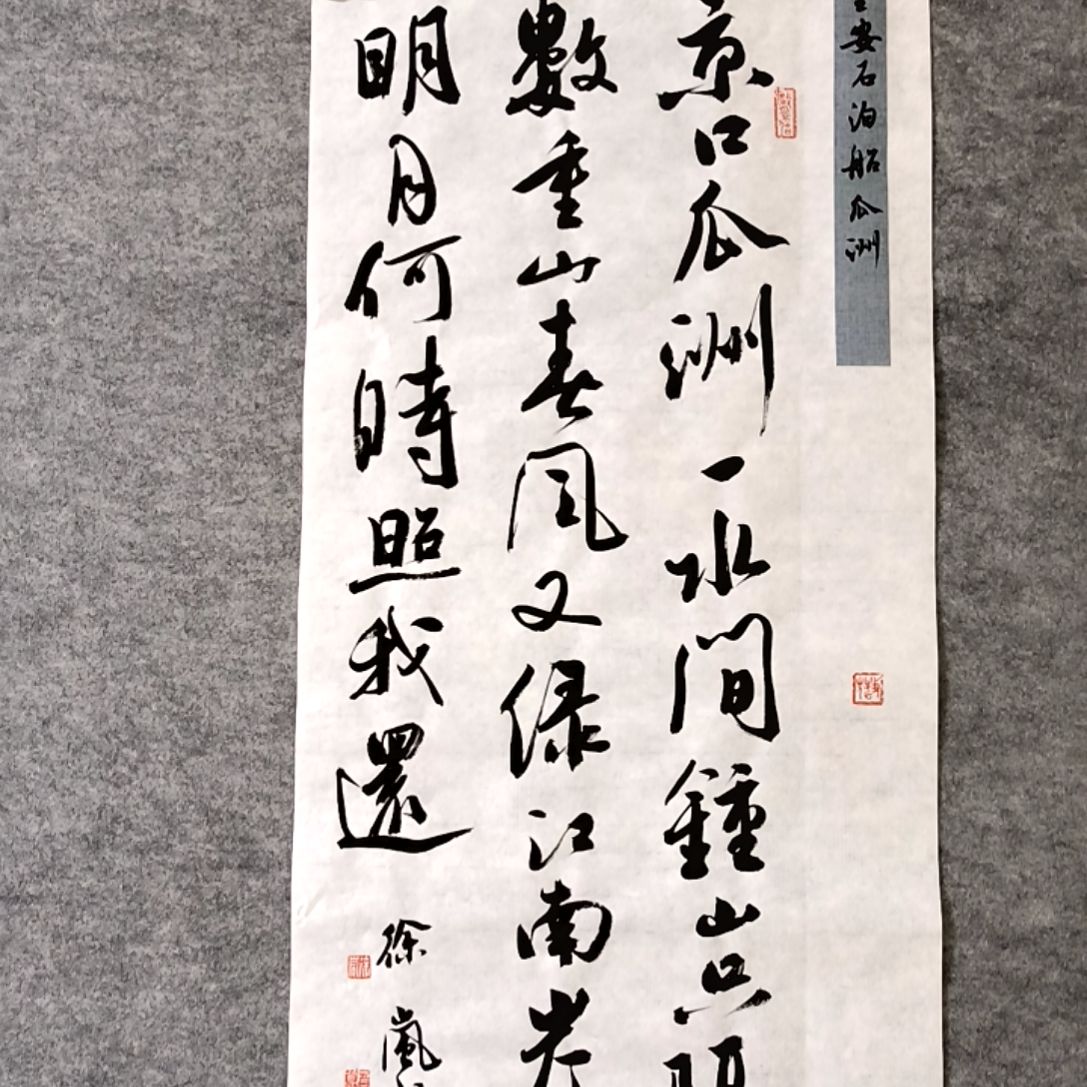 安石泊船瓜洲
京口瓜洲一水間鍾山只隔
數重山春風又綠江南岸
明月何時照我還
徐嵐